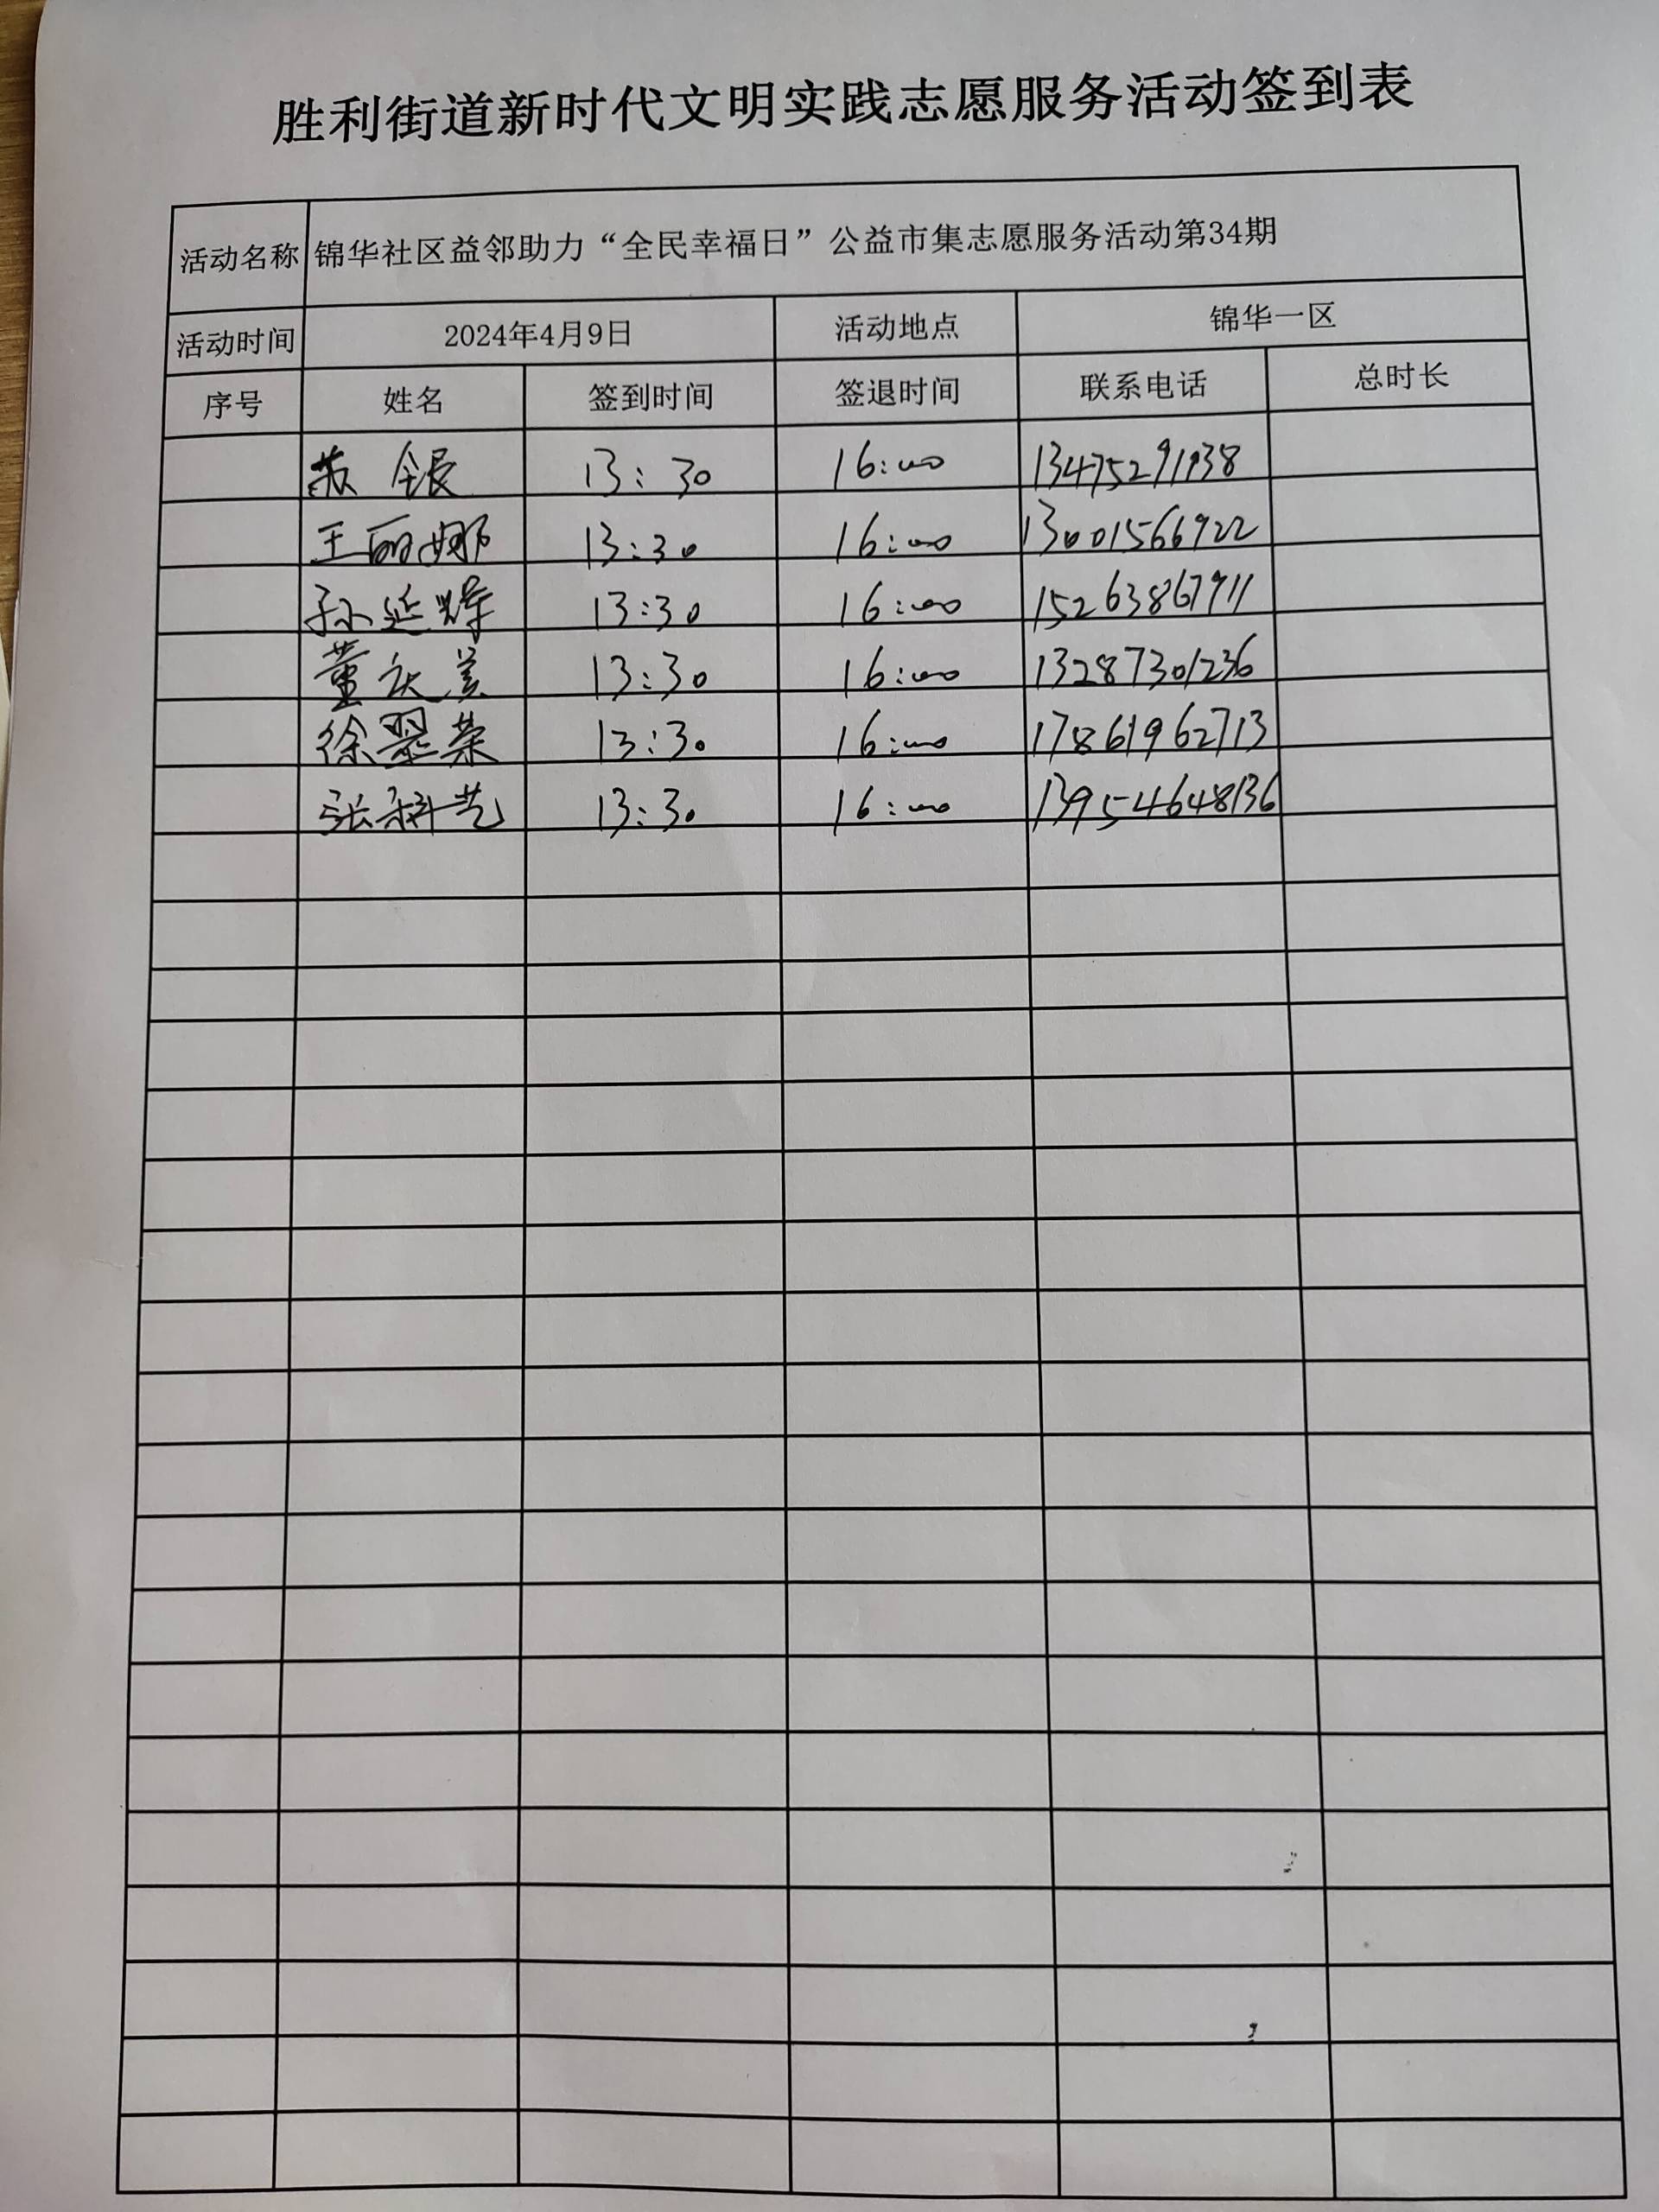 胜利街道新时代文明实践志愿服务活动签到表
活动名称 锦华社区益邻助力“全民幸福日”公益市集志愿服务活动第34期
活动时间 2024年4月9日 活动地点 锦华一区
序号 姓名 签到时间 签退时间 联系电话 总时长
苏银 13:30 16:00 13475291938
王丽娜 13:30 16:00 13001566922
孙延辉 13:30 16:00 15263867911
董庆美 13:30 16:00 13287301236
徐翠荣 13:30 16:00 17861962713
张耕艺 13:30 16:00 13954648136